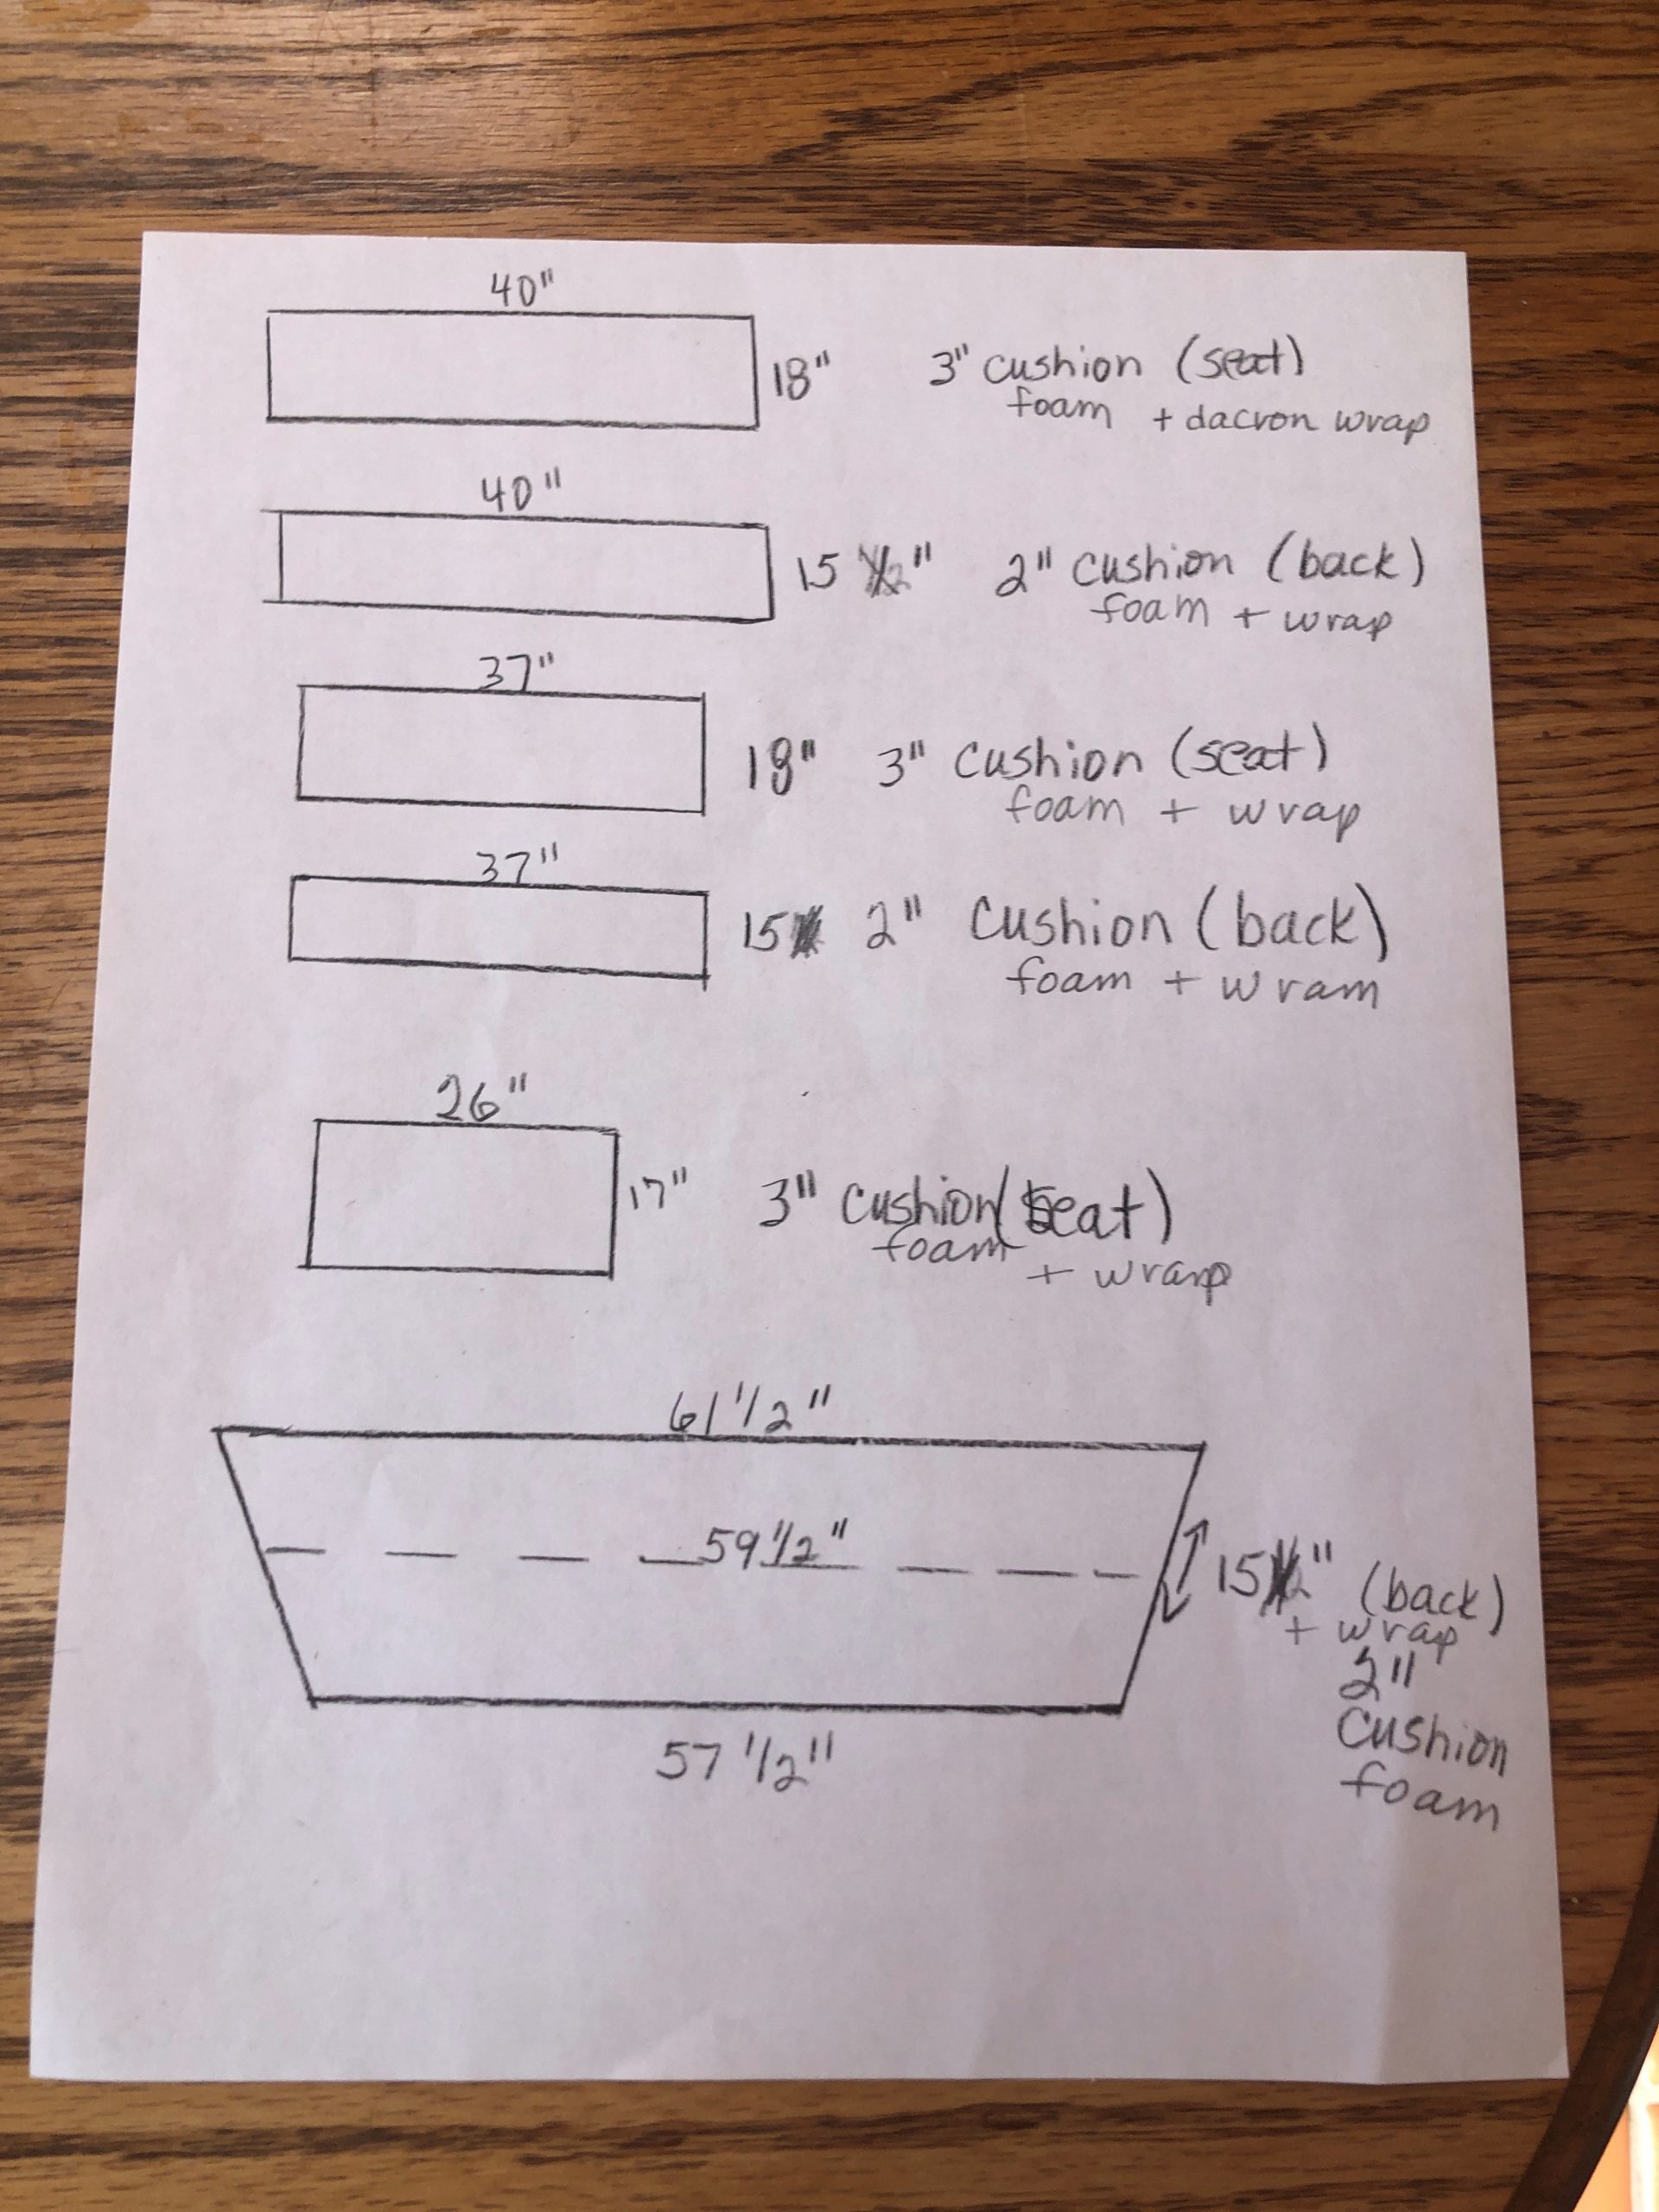 40"
18" 3" cushion (seat)
foam + dacron wrap
40"
15 " 2" cushion (back)
foam + wrap
37"
18" 3" cushion (seat)
foam + wrap
37"
15 2" cushion (back)
foam + wram
26"
17" 3" cushion (seat)
foam
+ wrap
61 1/2"
59 1/2"
15 " (back)
+ wrap
2"
cushion
foam
57 1/2"